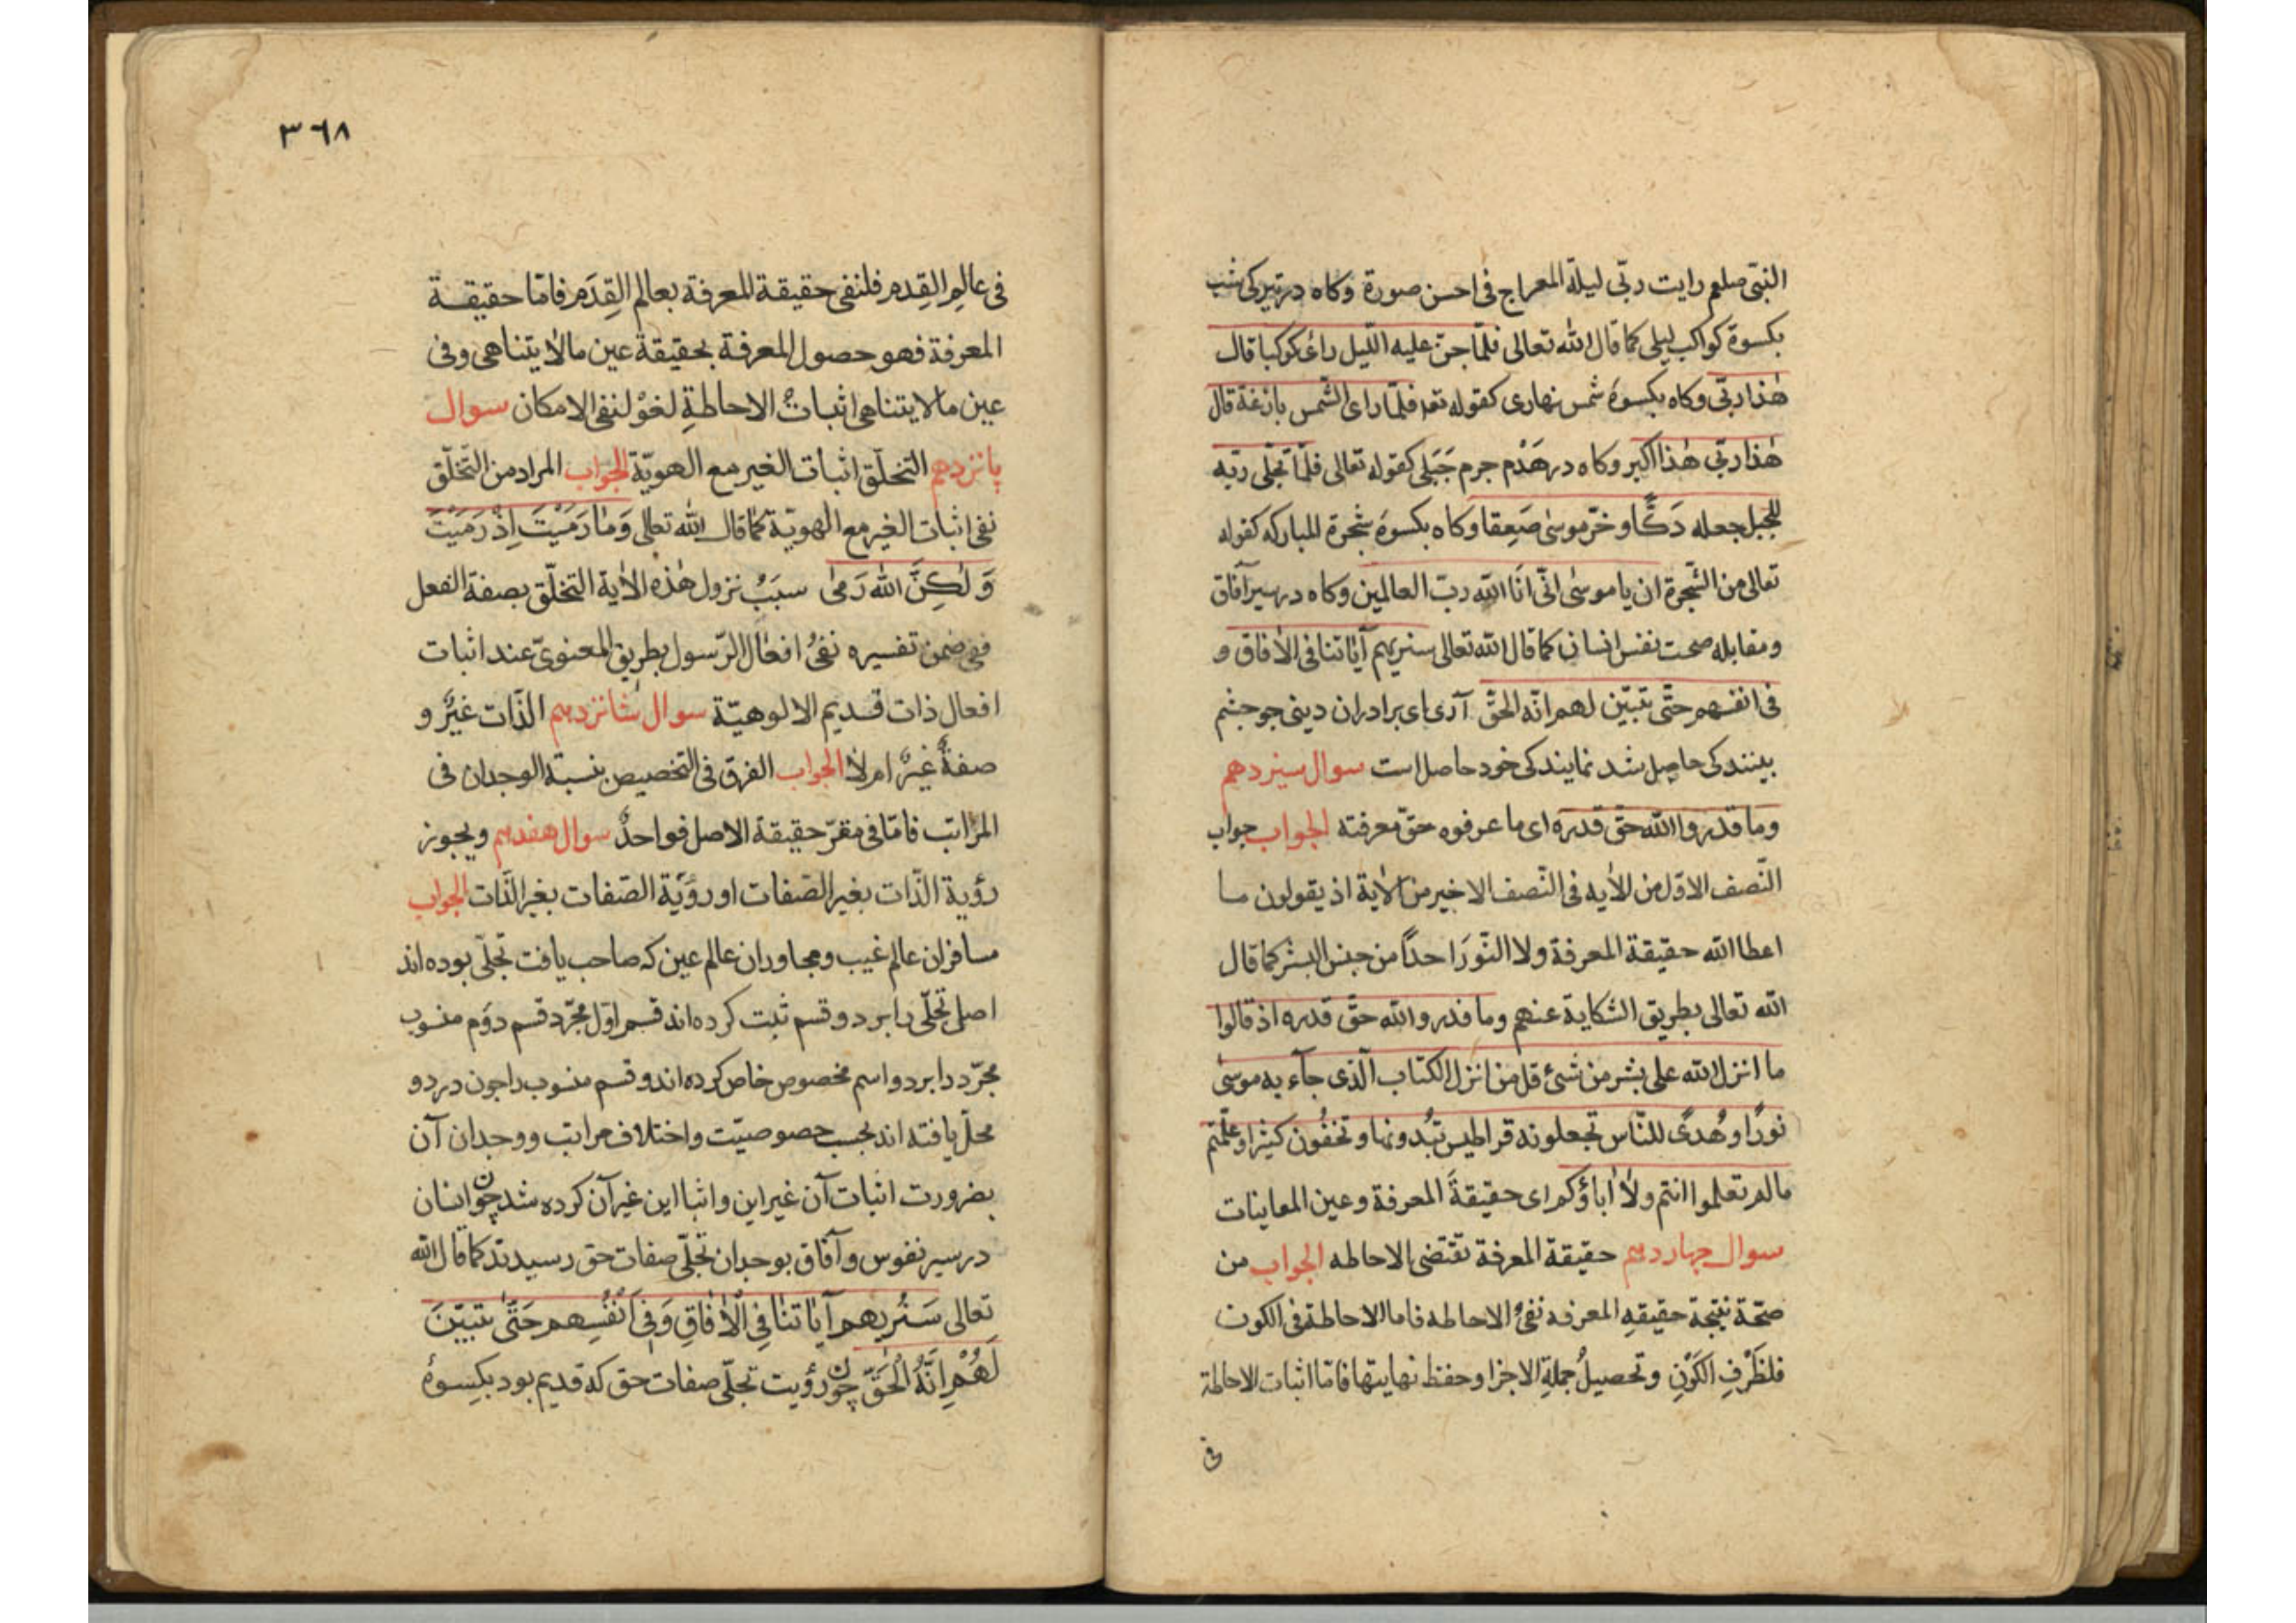 النبی صلعم رایت ربّی لیلة المعراج فی احسن صورة وکاه در تیرکی شب
بکسوة کواکب لیلی کما قال الله تعالی فلمّا جنّ علیه اللّیل رای کوکبا قال
هٰذا ربّی وکاه بکسوهٔ شمس نهاری کقوله تعا فلمّا رای الشّمس بازغة قال
هٰذا ربّی هٰذا اکبر وکاه در هَدْم جرم جَبَلی کقوله تعالی فلمّا تجلّی ربّه
للجبل جعله دَکًّا و خرّ موسیٰ صَعِقا وکاه بکسوهٔ شجرة المبارکه کقوله
تعالی من الشّجرة ان یا موسٰی انّی اَنَا الله ربّ العالمین وکاه در سیر آفاق
ومقابله صحت نفس انسان کما قال الله تعالی سنریهم آیٰاتنا فی الاٰفاق و
فی انفسهم حتّی تبیّن لهم انّه الحقّ آری ای برادران دینی جو جشم
بینند کی حاصل شد نمایند کی خود حاصل است سوال سیزدهم
وما قدروا الله حقّ قدره ای ما عرفوه حقّ معرفته الجواب جواب
النّصف الاوّل من الاٰیه فی النّصف الاخیر من الاٰیة اذ یقولون ما
اعطا الله حقیقة المعرفة ولا النّورَ احداً من جنس البشر کما قال
الله تعالی بطریق الشکایة عنهم وما قدروا الله حقّ قدره اذ قالوا
ما انزل الله علی بشر من شئ قل من انزل الکتاب الّذی جآء به موسٰی
نورًا و هُدیً للنّاس تجعلونه قراطیس تبُدونها وتخفُون کثیرا وعلّمتم
مالم تعلموا انتم ولاٰ اٰباؤکم ای حقیقةَ المعرفة وعین المعاینات
سوال چهاردهم حقیقة المعرفة تقتضی الاحاطه الجواب من
صحّة نتیجة حقیقهِ المعرفه نفیُ الاحاطه فاما الاحاطة فی الکون
فلظَرْفِ الکَوْنِ وتحصیلُ جملةِ الاجزا وحفظ نهایتها فامّا اثبات الاحاطة
فی
٣٦٨
فی عالَمِ القِدم فلنفی حقیقة المعرفة بعالم القِدَم فامّا حقیقة
المعرفة فهو حصول المعرفة بحقیقة عین مالاٰ یتناهی وفی
عین مالا یتناهی اثباتُ الاحاطةِ لغوٌ لنفی الامکان سوال
پانزدهم التخلّق اثبات الغیر مع الهویّة الجواب المراد من التّخلّق
نفی اثبات الغیر مع الهویّة کما قال الله تعالی وَمٰا رَمَیْتَ اِذْ رَمَیْتَ
وَ لٰکِنَّ الله رَمٰی سبَبُ نزول هٰذه الاٰیة التخلّق بصفة الفعل
ففی ضمن تفسیره نفیُ افعال الرّسول بطریق المعنویّ عند اثبات
افعال ذات قدیم الالوهیّة سوال شانزدهم الذّات غیرٌ و
صفةٌ غیرٌ ام لاٰ الجواب الفرق فی التخصیص بنسبة الوجدان فی
المراتب فامّا فی مقرّ حقیقة الاصل فواحدٌ سوال هفدهم ویجوز
رؤیة الذّات بغیر الصّفات او رؤیَة الصّفات بغیر الذّات الجواب
مسافران عالم غیب ومجاوران عالم عین که صاحب یافت تجلّی بوده اند
اصل تجلّی را بر دو قسم ثبت کرده اند قسم اوّل مجرّد قسم دوَم منسوب
مجرّد را بر دو اسم مخصوص خاص کرده اند و قسم منسوب را جون در دو
محلّ یافته اند بحسب خصوصیّت واختلاف مراتب و وجدان آن
بضرورت اثبات آن غیر این واثبا این غیر آن کرده شد چون انسان
در سیر نفوس و آفاق بوجدان تجلّی صفات حق رسیدند کما قال الله
تعالی سَنُریهم آیٰاتنٰا فِی الْاٰفٰاقِ وَفِی اَنْفُسِهم حَتّٰی یتبیّنَ
لَهُمْ اِنَّهُ الْحَقّ چون رؤیت تجلّی صفات حق که قدیم بود بکِسوهٔ